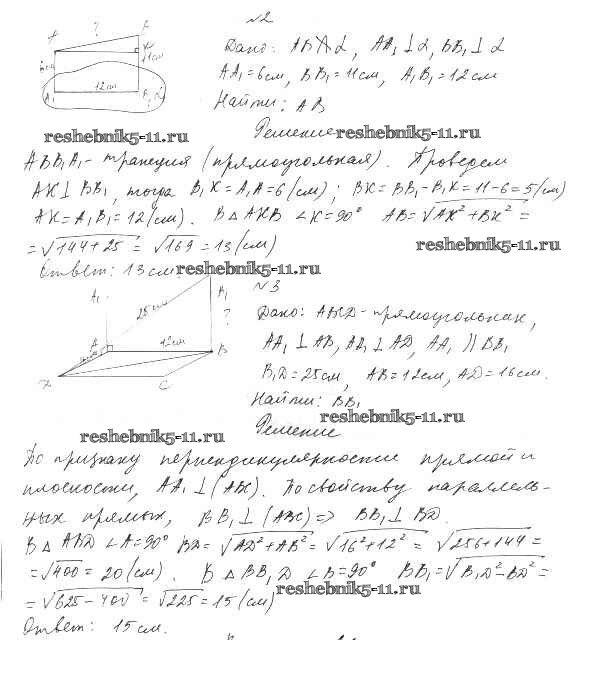 N2
Дано: AB∦α, AA₁⊥α, BB₁⊥α
AA₁=6см, BB₁=11см, A₁B₁=12см
Найти: AB
Решение
reshebnik5-11.ru reshebnik5-11.ru
? 11см 12см A₁ B₁ α
ABB₁A₁ - трапеция (прямоугольная). Проведем
AK⊥BB₁, тогда B₁K=A₁A=6(см); BK=BB₁-B₁K=11-6=5(см)
AK=A₁B₁=12(см). В △AKB ∠K=90° AB=√AK²+BK²=
reshebnik5-11.ru
=√144+25=√169=13(см)
Ответ: 13см.
reshebnik5-11.ru
N3
A₁ 25см ? 12см B C
Дано: ABCD-прямоугольник,
AA₁⊥AB, AA₁⊥AD, AA₁∥BB₁
B₁D=25см, AB=12см, AD=16см.
Найти: BB₁
reshebnik5-11.ru
reshebnik5-11.ru
Решение
По признаку перпендикулярности прямой и
плоскости, AA₁⊥(ABC). По свойству параллель-
ных прямых, BB₁⊥(ABC)=> BB₁⊥BD.
В △ABD ∠A=90° BD=√AD²+AB²=√16²+12²=√256+144=
=√400=20(см). В △BB₁D ∠B=90° BB₁=√B₁D²-BD²=
=√625-400=√225=15(см)
reshebnik5-11.ru
Ответ: 15см.